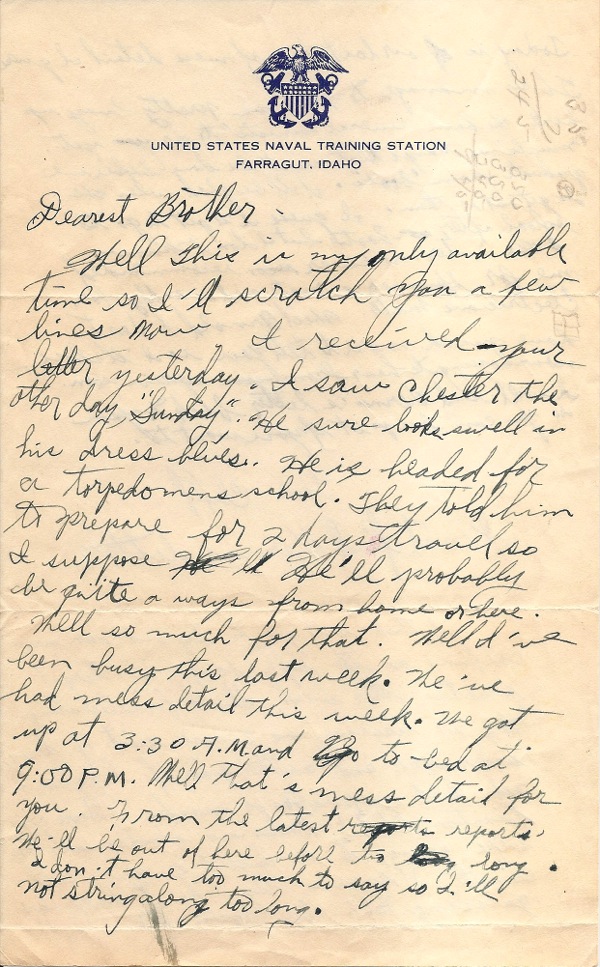 UNITED STATES NAVAL TRAINING STATION
FARRAGUT, IDAHO
Dearest Brother -
Well this is my only available
time so I'll scratch you a few
lines now I received your
letter yesterday. I saw Chester the
other day "Sunday". He sure looks swell in
his dress blues. He is headed for
a torpedomens school. They told him
to prepare for 2 days travel so
I suppose He'll probably
be quite a ways from home or here.
Well so much for that. Well I've
been busy this last week. We've
had mess detail this week. We got
up at 3:30 A.M. and go to bed at
9:00 P.M. Well that's mess detail for
you. From the latest reports
We'll be out of here before to long.
I don't have too much to say so I'll
not string along too long.